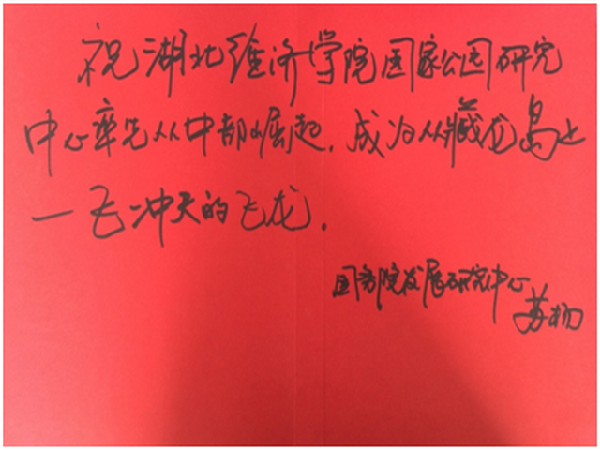 祝湖北经济学院国家公园研究
中心率先从中部崛起,成为从藏龙岛上
一飞冲天的飞龙.
国务院发展研究中心
苏杨